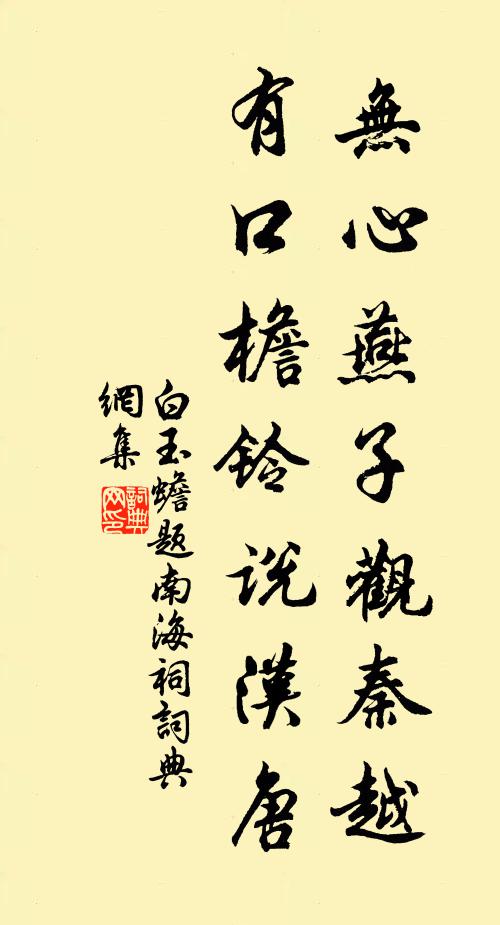 無心燕子觀秦越
有口檐鈴説漢唐
白玉蟾题南海祠詞典
網集
詞典
网印